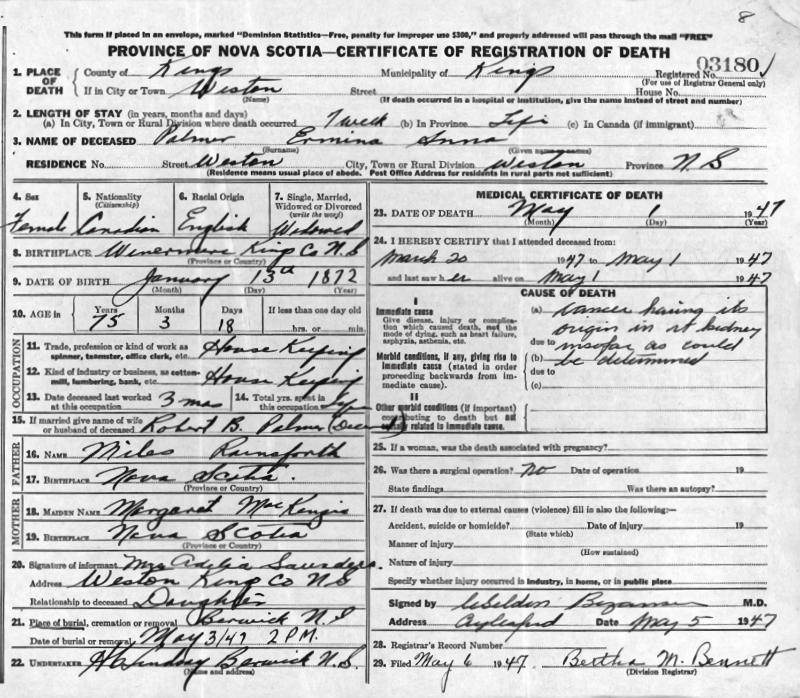 8
This form if placed in an envelope, marked "Dominion Statistics—Free, penalty for improper use $300," and properly addressed will pass through the mail "FREE"
PROVINCE OF NOVA SCOTIA—CERTIFICATE OF REGISTRATION OF DEATH
1. PLACE OF DEATH County of Kings Municipality of Kings Registered No. 03180
(For use of Registrar General only)
If in City or Town Weston Street House No.
(Name) (If death occurred in a hospital or institution, give the name instead of street and number)
2. LENGTH OF STAY (in years, months and days)
(a) In City, Town or Rural Division where death occurred 1 week (b) In Province Life (c) In Canada (if immigrant)
3. NAME OF DECEASED Palmer Ermina Anna
(Surname) (Given names)
RESIDENCE No. Street Weston City, Town or Rural Division Weston Province N.S
(Residence means usual place of abode. Post Office Address for residents in rural parts not sufficient)
4. Sex 5. Nationality (Citizenship) 6. Racial Origin 7. Single, Married, Widowed or Divorced (write the word)
Female Canadian English Widowed
8. BIRTHPLACE King Co N S
(Province or Country)
9. DATE OF BIRTH January 13th 1872
(Month) (Day) (Year)
10. AGE in Years Months Days If less than one day old
75 3 18 hrs. or min.
OCCUPATION
11. Trade, profession or kind of work as spinner, teamster, office clerk, etc. House Keeping
12. Kind of industry or business, as cotton-mill, lumbering, bank, etc. House Keeping
13. Date deceased last worked at this occupation 3 mos 14. Total yrs. spent in this occupation
15. If married give name of wife or husband of deceased Robert B. Palmer
FATHER
16. NAME Miles Rainsforth
17. BIRTHPLACE Nova Scotia.
(Province or Country)
MOTHER
18. MAIDEN NAME Margaret MacKenzie
19. BIRTHPLACE Nova Scotia
(Province or Country)
20. Signature of informant Mrs Adelia Saunders
Address Weston King Co N S
Relationship to deceased Daughter
21. Place of burial, cremation or removal Berwick N.S
Date of burial or removal May 3/47 2 P.M.
22. UNDERTAKER Berwick N.S.
(Name and address)
MEDICAL CERTIFICATE OF DEATH
23. DATE OF DEATH May 1 1947
(Month) (Day) (Year)
24. I HEREBY CERTIFY that I attended deceased from:
March 20 1947 to May 1 1947
and last saw her alive on May 1 1947
CAUSE OF DEATH
I
Immediate cause
Give disease, injury or complication which caused death, not the mode of dying, such as heart failure, asphyxia, asthenia, etc.
Morbid conditions, if any, giving rise to immediate cause (stated in order proceeding backwards from immediate cause).
II
Other morbid conditions (if important) contributing to death but not causally related to immediate cause.
(a) Cancer having its
origin in rt kidney
due to insofar as could
(b) be determined
due to
(c)
25. If a woman, was the death associated with pregnancy?
26. Was there a surgical operation? No Date of operation 19
State findings Was there an autopsy?
27. If death was due to external causes (violence) fill in also the following:—
Accident, suicide or homicide? Date of injury 19
(State which)
Manner of injury
(How sustained)
Nature of injury
Specify whether injury occurred in industry, in home, or in public place
Signed by M.D.
Address Aylesford Date May 5 1947
28. Registrar's Record Number
29. Filed May 6 1947. Bertha M. Bennett
(Division Registrar)